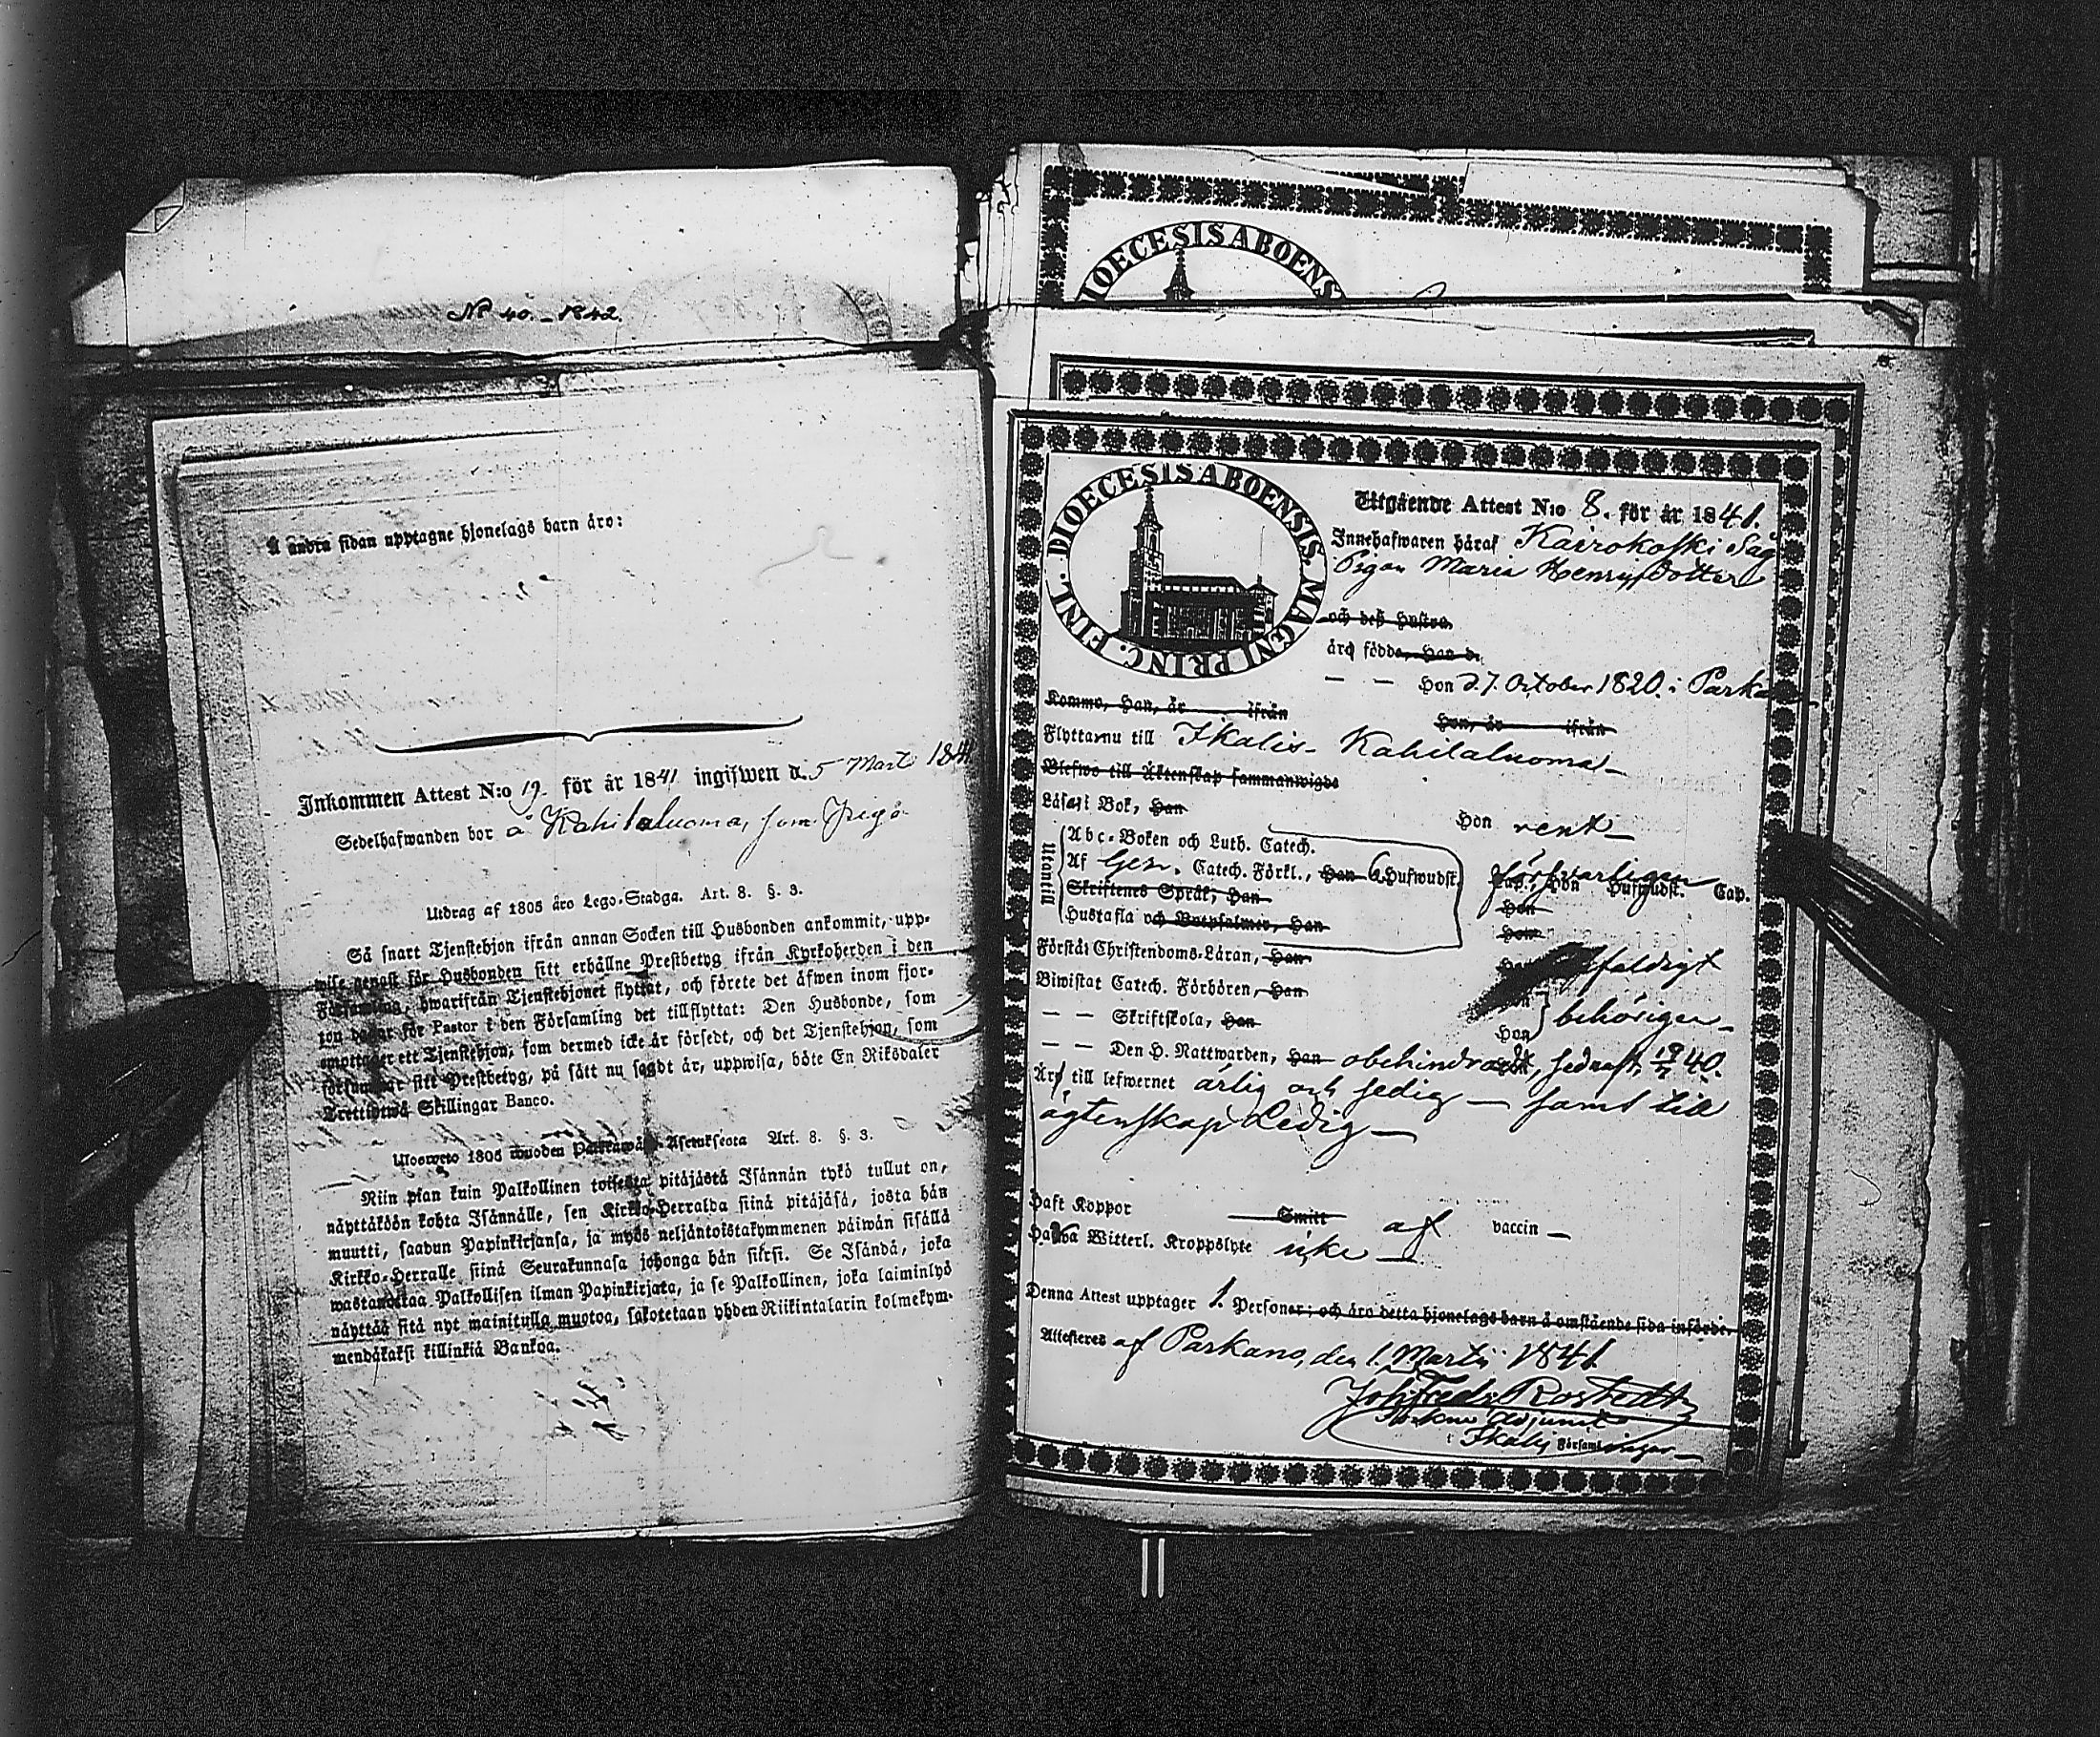 No 40. – 1842.
Å andra sidan upptagne hjonelags barn äro:
Inkommen Attest N:o 19. för år 1841 ingifwen d. 5 Marti 1841
Sedelhafwanden bor å Kahilaluoma, som Piga
Utdrag af 1805 års Lego-Stadga. Art. 8. §. 3.
Så snart Tjenstehjon ifrån annan Socken till Husbonden ankommit, upp-
wise genast för Husbonden sitt erhållne Prestbetyg ifrån Kyrkoherden i den
Församling, hwarifrån Tjenstehjonet flyttat, och förete det äfwen inom fjor-
ton dagar för Pastor i den Församling det tillflyttat: Den Husbonde, som
emottager ett Tjenstehjon, som dermed icke är försedt, och det Tjenstehjon, som
försummar sitt Prestbetyg, på sätt nu sagdt är, uppwisa, böte En Riksdaler
Trettiotwå Skillingar Banco.
Ulosweto 1805 wuoden Palkkawäen-Asetuksesta Art. 8. §. 3.
Niin pian kuin Palkollinen toisesta pitäjästä Isännän tykö tullut on,
näyttäköön kohta Isännälle, sen Kirkko-Herralda siinä pitäjäsä, josta hän
muutti, saadun Papinkirjansa, ja myös neljäntoistakymmenen päiwän sisällä
Kirkko-Herralle siinä Seurakunnasa johonga hän siirsi. Se Isändä, joka
wastanottaa Palkollisen ilman Papinkirjata, ja se Palkollinen, joka laiminlyö
näyttää sitä nyt mainitulla muotoa, sakotetaan yhden Riikintalarin kolmekym-
mendäkaksi killinkiä Bankoa.
DIOECESIS ABOENS
DIOECESIS ABOENSIS. MAGNI PRINC. FINL.
Utgående Attest N:o 8. för år 1841.
Innehafwaren häraf Kairokoski Såg
Pigan Maria Henrichsdotter
och deß Hustru.
äro födde, Han d.
— — Hon d. 7. October 1820. i Parkano
Kommo, Han, år ifrån Hon, år ifrån
Flytta nu till Ikalis- Kahilaluoma —
Blefwo till Äktenskap sammanwigde
Läsa i Bok, Han Hon rent —
Utantill
Abc-Boken och Luth. Catech.
Af Gez. Catech. Förkl., Han 6. Hufwudst. Cap., Hon Hufwudst. Cap.
försvarligen
Skriftenes Språk, Han Hon
Hustafla och Botpsalmer, Han Hon
Förstår Christendoms-Läran, Han faldigt
Biwistat Catech. Förhören, Han Hon behörigen —
— — Skriftskola, Han Hon
— — Den H. Nattwarden, Han obehindradt, sednast 40.
Äro till lefwernet ärlig och sedig — samt till
ägtenskap Ledig —
Haft Koppor Smitt af vaccin —
Hafwa Witterl. Kroppslyte icke —
Denna Attest upptager 1. Personer; och äro detta hjonelags barn å omstående sida införde.
Attesteres af Parkano, den 1. Martii 1841
Joh. Fredr. Rostedt
Sockne Adjunct
i Ikalis Församlingar —